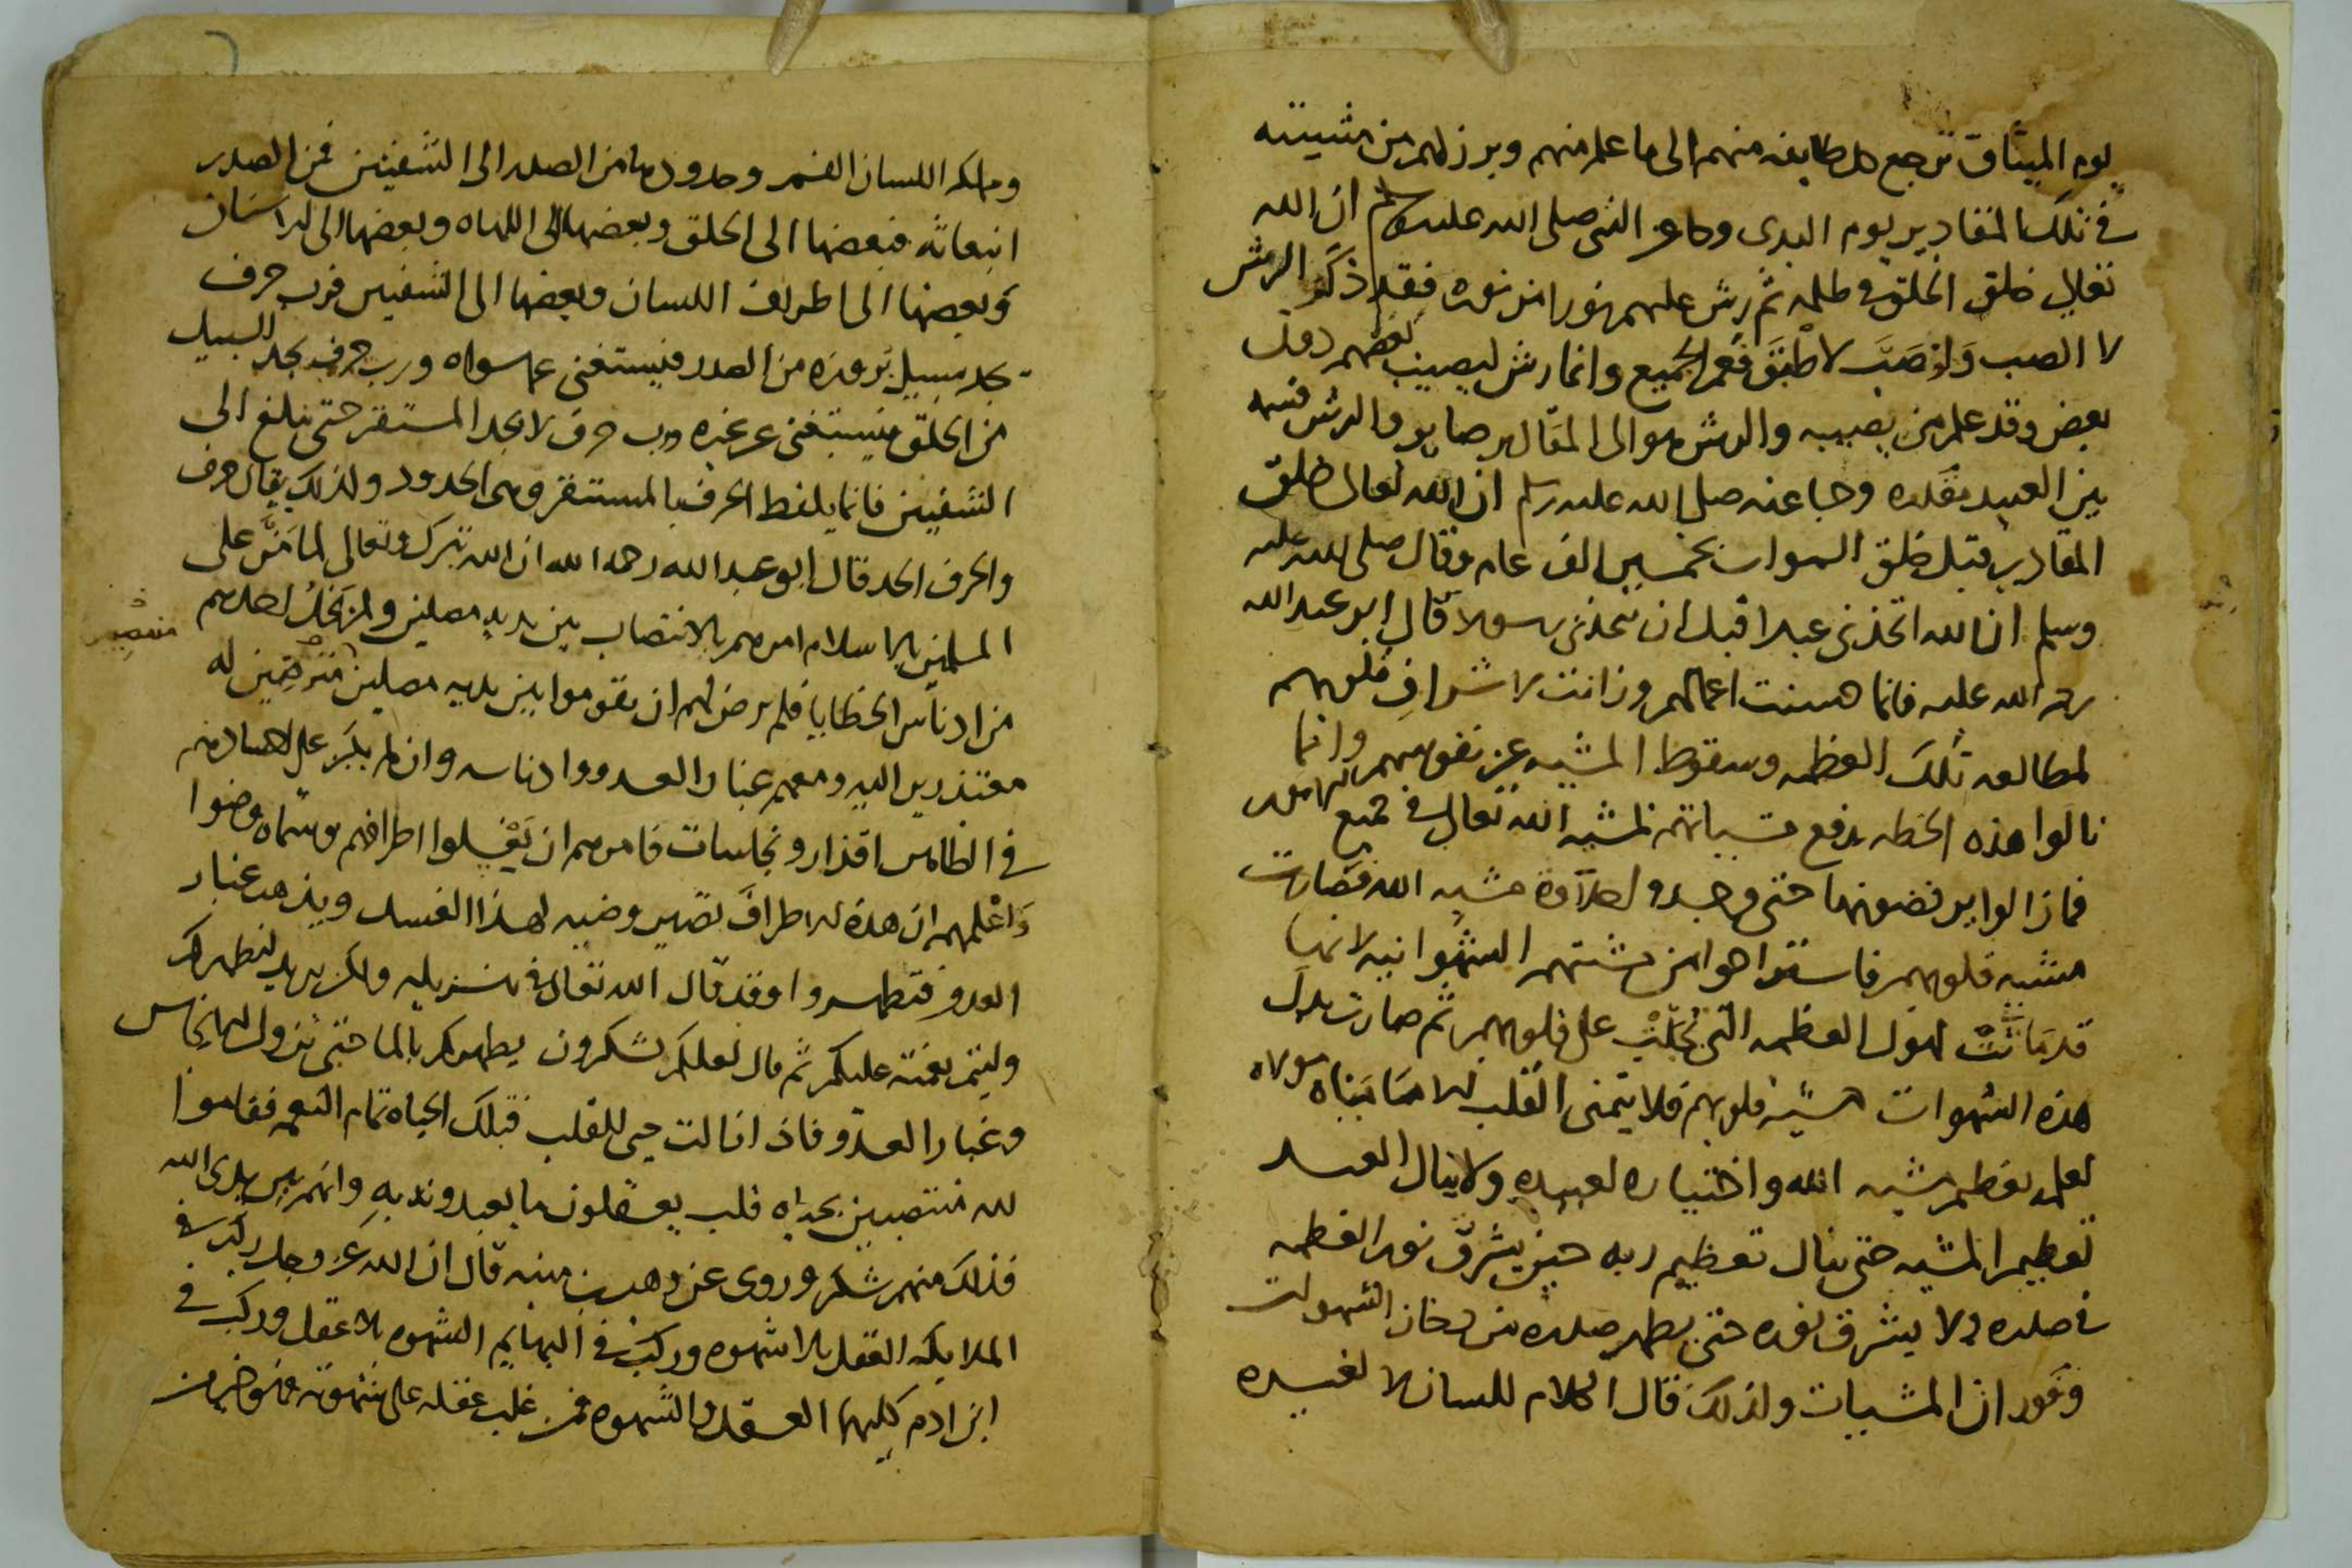 يوم الميثاق ترجع كل طايفه منهم الى ما علم منهم وبرز لهم من مشيته
في تلك المقادير يوم البدى وجا عن النبي صلى الله عليه وسلم ان الله
تعالى خلق الخلق في ظلمه ثم رش عليهم نورا من نوره فقد ذكر الرش
لا الصب ولو صب لاطبق فعم الجميع وانما رش ليصيب بعضهم دون
بعض وقد علم من يصيبه والرش هو الى المقادير صاير والرش قسمه
بين العبيد بقدره وجا عنه صلى الله عليه وسلم ان الله تعالى خلق
المقادير قبل خلق السموات بخمسين الف عام وقال صلى الله عليه
وسلم ان الله اتخذنى عبدا قبل ان يتخذنى رسولا قال ابو عبد الله
رحمة الله عليه فانما حسنت اعمالهم وزانت لاشراف قلوبهم
لمطالعه تلك العظمه وسقوط المشيه عن نفوسهم وانما
نالوا هذه الخطه برفع مشياتهم لمشيه الله تعالى في جميع الامور
فما زالوا يرفضونها حتى وجدوا حلاوة مشيه الله فصارت
مشيه قلوبهم فاستراحوا من مشيتهم الشهوانيه لانها
قد ماتت لهول العظمه التى تجلت على قلوبهم ثم صارت بدل
هذه الشهوات مشيه قلوبهم فلا يتمنى القلب الا ما يشاه مولاه
لعلمه بعظم مشيه الله واختياره لعبيده ولا ينال العبد
تعظيم المشيه حتى ينال تعظيم ربه حين يشرق نور العظمه
في صدره ولا يشرق نوره حتى يطهر صدره من دخان الشهوات
وفوران المشيات ولذلك قال الكلام للسان لا لغيره
وملكه اللسان الفم وحدودها من الصدر الى الشفتين فمن الصدر
انبعاثه فبعضها الى الحلق وبعضها الى اللهاه وبعضها الى الاسنان
وبعضها الى اطراف اللسان وبعضها الى الشفتين فرب حرف
يجد سبيل بروزه من الصدر فيستغنى عما سواه ورب حرف يجد السبيل
من الحلق فيستغنى عن غيره ورب حرف لا يجد المستقر حتى يبلغ الى
الشفتين فانما يلفظ الحرف بالمستقر وهى الحدود ولذلك يقال حرف
والحرف الحد قال ابو عبد الله رحمه الله ان الله تبرك وتعالى لما من على
المسلمين بالاسلام امرهم بالانتصاب بين يديه مصلين ولم يخل احدهم
من ادناس الخطايا فلم يرض لهم ان يقوموا بين يديه مصلين مترضين له
معتذرين اليه ومعهم غبار العدو وادناسه وان لم يكن على اجسادهم
في الظاهر اقذار ونجاسات فامرهم ان يغسلوا اطرافهم وسماه وضوا
واعلمهم ان هذه الاطراف تصير وضيه لهذا الغسل ويذهب غبار
العدو فتطهروا وقد قال الله تعالى في تنزيله ولكن يريد ليطهركم
وليتم نعمته عليكم ثم قال لعلكم تشكرون يطهركم بالما حتى تزول الانجاس
وغبار العدو فاذا زالت حيى القلب فتلك الحياه تمام النعمه فقاموا
لله منتصبين بحياه قلب يعقلون ما يعبدونه به وانهم بين يدى الله
فذلك منهم شكر وروى عن وهب بن منبه قال ان الله عز وجل ركب في
الملايكه العقل بلا شهوه وركب في البهايم الشهوه بلا عقل وركب في
ابن ادم كليهما العقل والشهوه فمن غلب عقله على شهوته فهو خير من